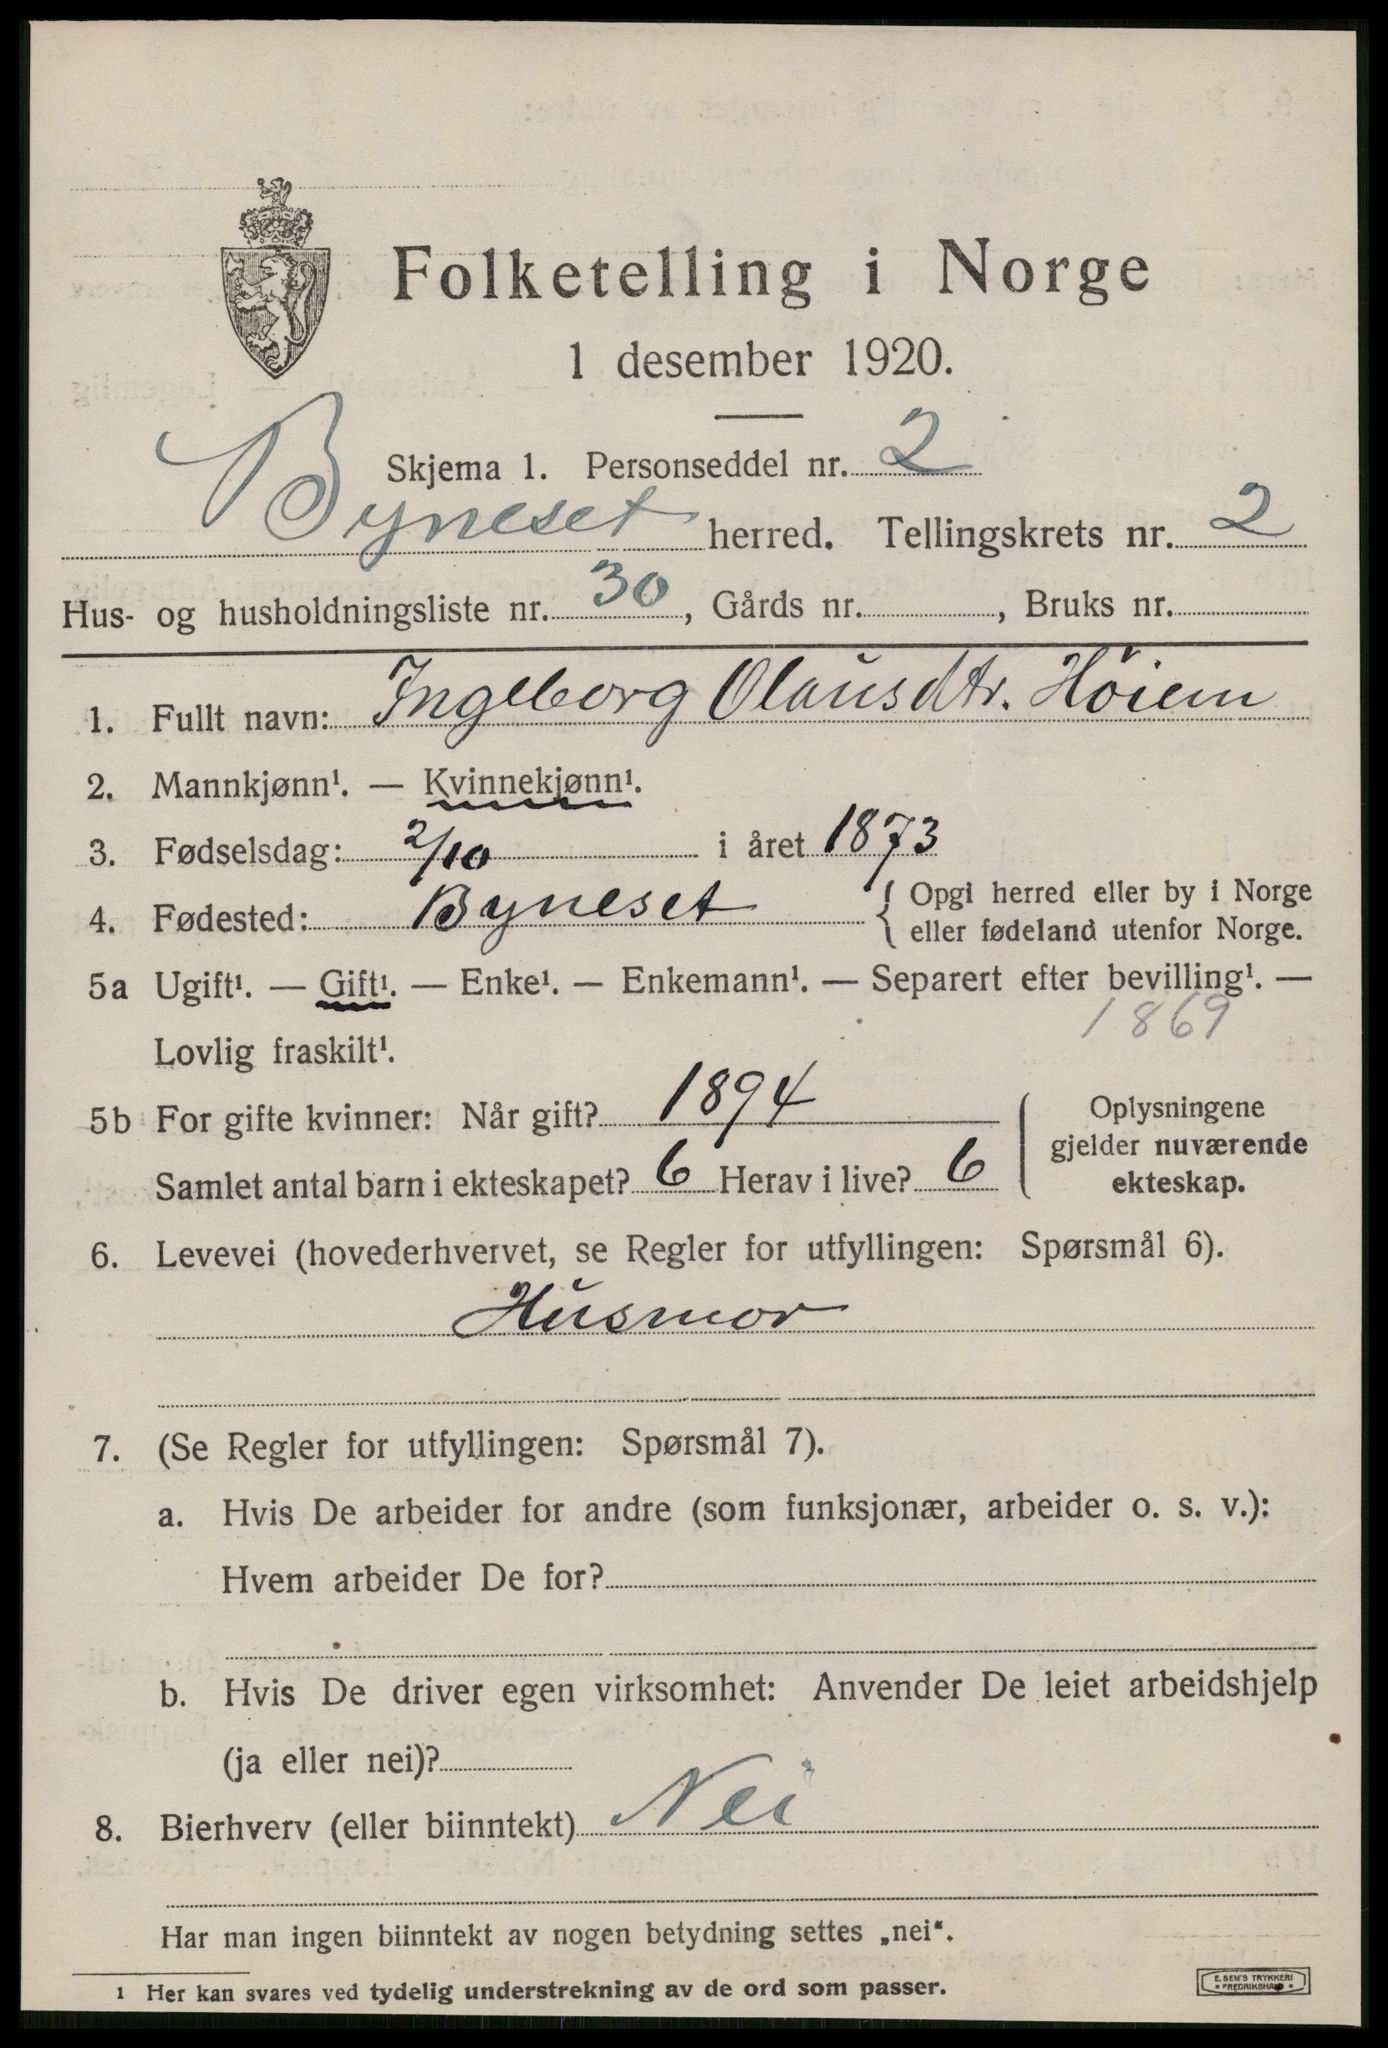 Folketelling i Norge
1 desember 1920.
Skjema 1. Personseddel nr. 2
Byneset herred. Tellingskrets nr. 2
Hus- og husholdningsliste nr. 30, Gårds nr. , Bruks nr.
1. Fullt navn: Ingeborg Olausdtr. Höiem
2. Mannkjønn¹. — Kvinnekjønn¹.
3. Fødselsdag: 2/10 i året 1873
4. Fødested: Byneset { Opgi herred eller by i Norge
eller fødeland utenfor Norge.
5a Ugift¹. — Gift¹. — Enke¹. — Enkemann¹. — Separert efter bevilling¹. —
1869
Lovlig fraskilt¹.
5b For gifte kvinner: Når gift? 1894
Samlet antal barn i ekteskapet? 6 Herav i live? 6
Oplysningene
gjelder nuværende
ekteskap.
6. Levevei (hovederhvervet, se Regler for utfyllingen: Spørsmål 6).
Husmor
7. (Se Regler for utfyllingen: Spørsmål 7).
a. Hvis De arbeider for andre (som funksjonær, arbeider o. s. v.):
Hvem arbeider De for?
b. Hvis De driver egen virksomhet: Anvender De leiet arbeidshjelp
(ja eller nei)?
8. Bierhverv (eller biinntekt) Nei
Har man ingen biinntekt av nogen betydning settes „nei“.
¹ Her kan svares ved tydelig understrekning av de ord som passer.
E. SEM'S TRYKKERI
FREDRIKSHALD